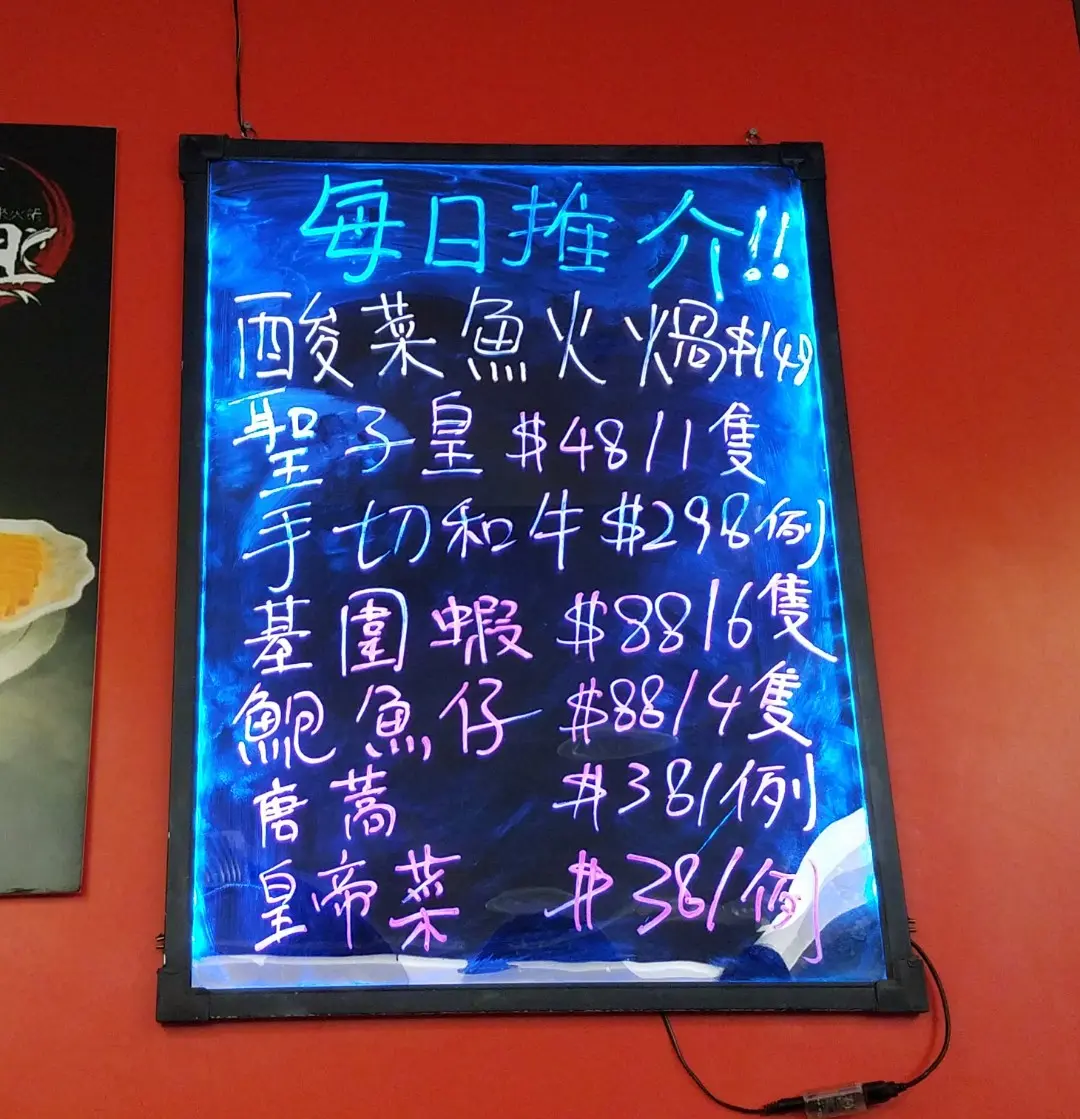 每日推介!!
酸菜魚火煱$149
聖子皇 $48/1隻
手切和牛 $298例
基圍蝦 $88/6隻
鮑魚仔 $88/4隻
唐蒿 $38/例
皇帝菜 $38/例